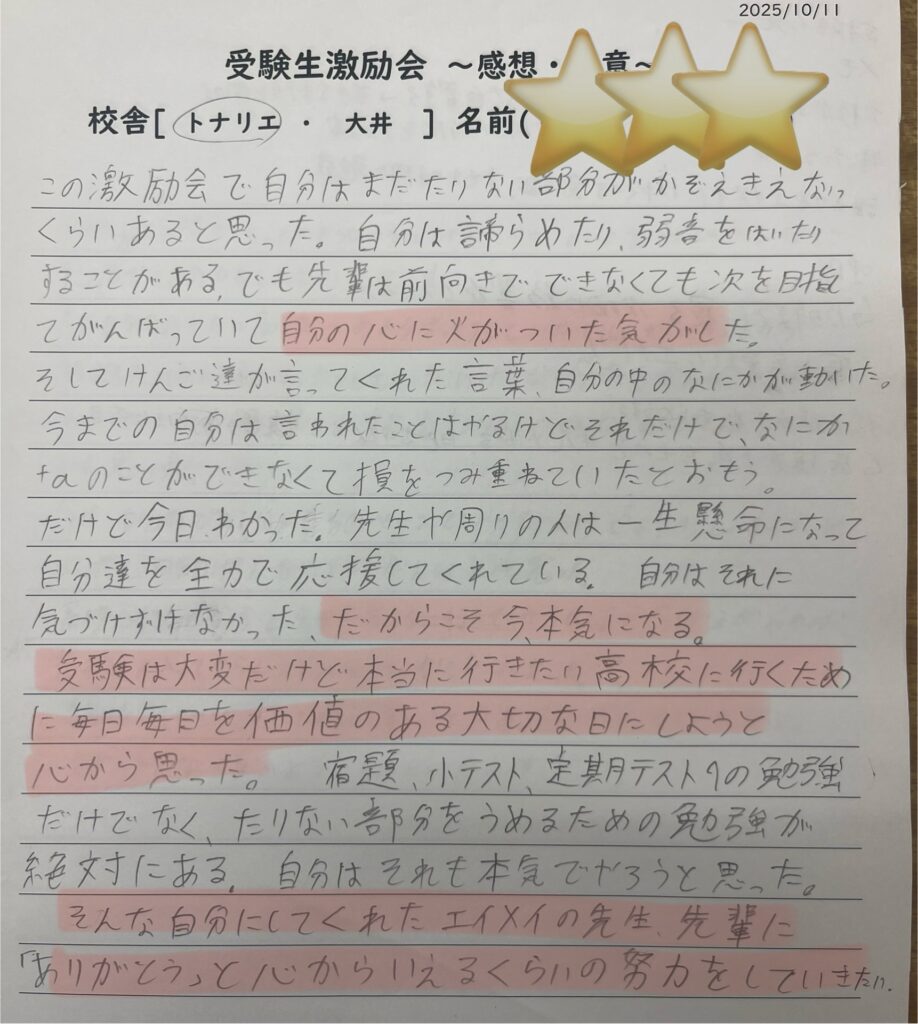 2025/10/11
受験生激励会 ～感想・意～
校舎[ トナリエ ・ 大井 ] 名前(
この激励会で自分はまだたりない部分がかぞえきえない
くらいあると思った。自分は諦らめたり、弱音をはいたり
することがある、でも先輩は前向きで できなくても次を目指し
てがんばっていて自分の心に火がついた気がした。
そしてけんご達が言ってくれた言葉、自分の中のなにかが動いた。
今までの自分は言われたことはやるけどそれだけで、なにか
+αのことができなくて損をつみ重ねていたとおもう。
だけど今日、わかった。先生や周りの人は一生懸命になって
自分達を全力で応援してくれている。 自分はそれに
気づけずけなかった、だからこそ今、本気になる。
受験は大変だけど本当に行きたい高校に行くため
に毎日毎日を価値のある大切な日にしようと
心から思った。 宿題、小テスト、定期テストへの勉強
だけでなく、たりない部分をうめるための勉強が
絶対にある。 自分はそれも本気でやろうと思った。
そんな自分にしてくれたエイメイの先生、先輩に
「ありがとう」と心からいえるくらいの努力をしていきたい。